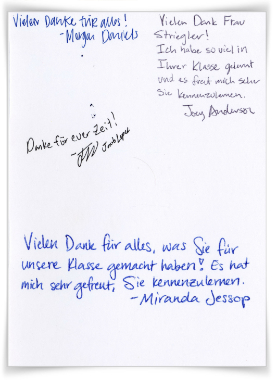 Vielen Danke für alles!
-Morgan Daniels
Vielen Dank Frau
Striegler!
Ich habe so viel in
Ihrer Klasse gelernt
und es freut mich sehr
Sie kennenzulernen.
Joey Anderson
Danke für euer Zeit!
Vielen Dank für alles, was Sie für
unsere Klasse gemacht haben! Es hat
mich sehr gefreut, Sie kennenzulernen.
-Miranda Jessop